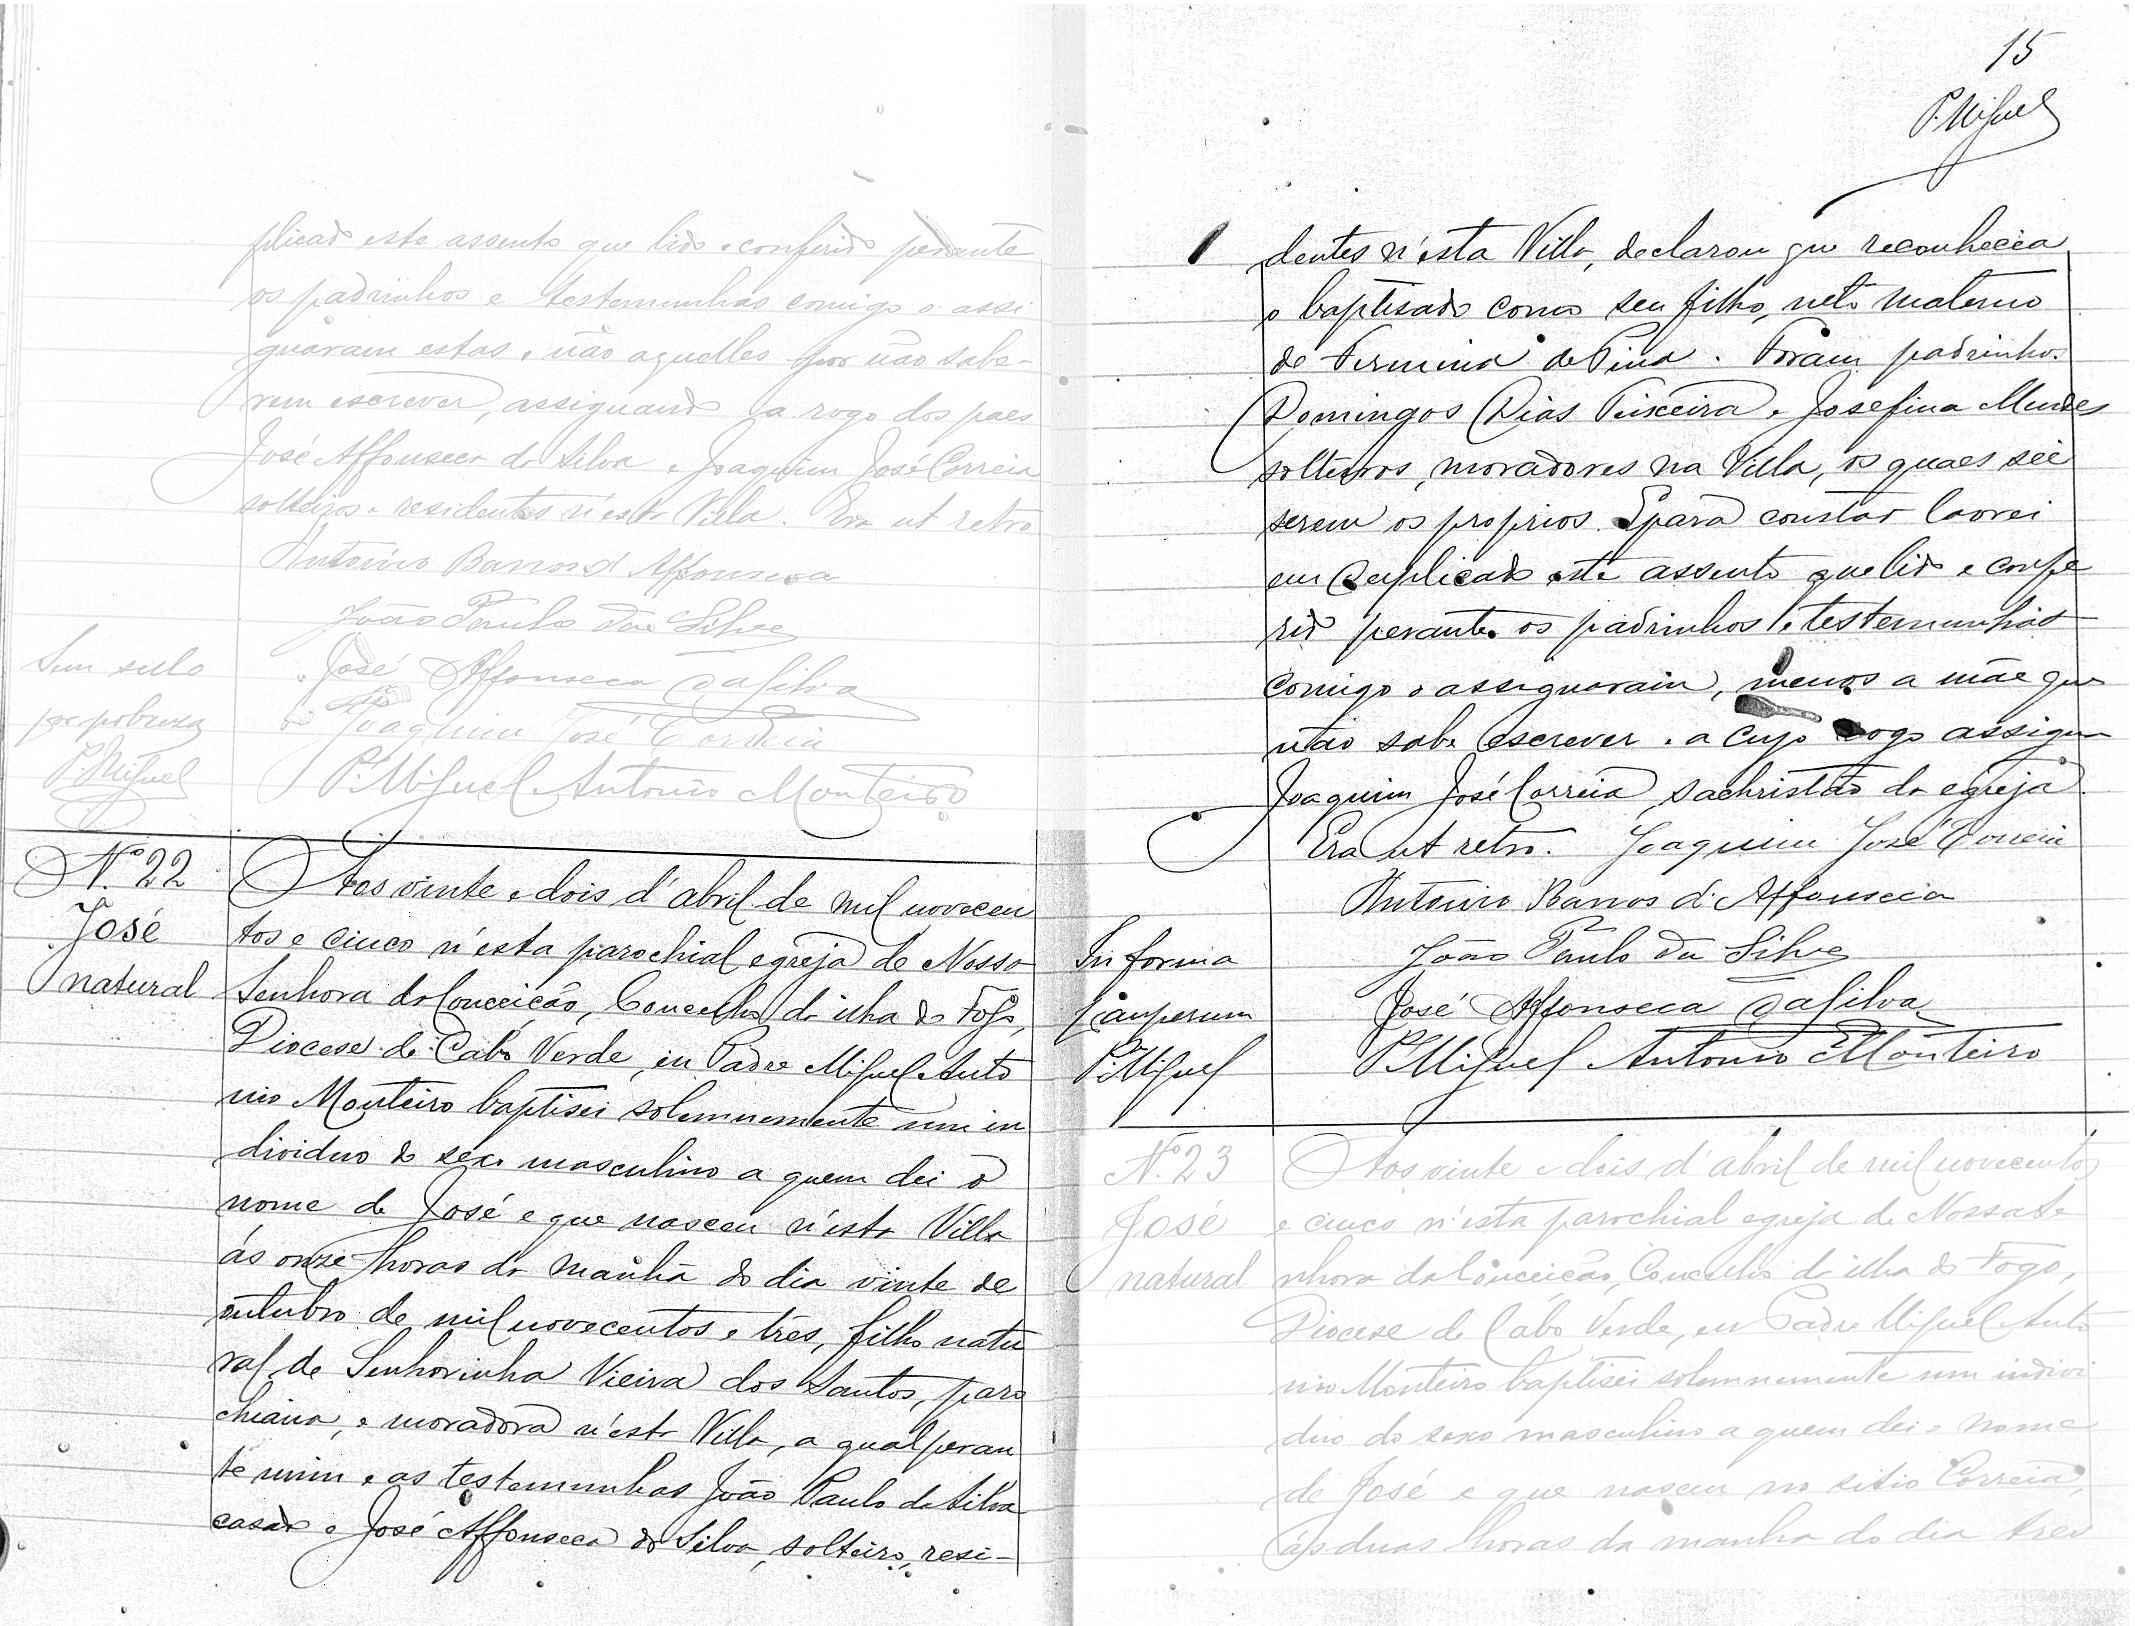 plicado este assento que lido e conferido perante
os padrinhos e testemunhas comigo o assi
gnaram estas e não aquelles por não sabe-
rem escrever, assignando a rogo dos paes
José Affonseca da Silva e Joaquim José Correia
solteiros e residentes n'esta Villa. Era ut retro
Antonio Barros d'Affonseca
João Paulo da Silva
José Affonseca da Silva
Joaquim José Correia
P.e Miguel Antonio Monteiro
Sem sello
por pobreza
P. Miguel
N.º 22
José
natural
Aos vinte e dois d'abril de mil novecen
tos e cinco n'esta parochial egreja de Nossa
Senhora da Conceição, Concelho da ilha do Fogo,
Diocese de Cabo Verde, eu Padre Miguel Anto
nio Monteiro baptisei solemnemente um in
dividuo do sexo masculino a quem dei o
nome de José e que nasceu n'esta Villa
ás onze horas da manhã do dia vinte de
outubro de mil novecentos e três, filho natu
ral de Senhorinha Vieira dos Santos, paro
chiana, e moradora n'esta Villa, a qual peran
te mim e as testemunhas João Paulo da Silva
casado e José Affonseca da Silva, solteiro, resi-
15
P. Miguel
dentes n'esta Villa, declarou que reconhecia
o baptisado como seu filho, neto materno
de Firmina de Pina. Foram padrinhos
Domingos Dias Teixeira e Josefina Mendes
solteiros, moradores na Villa, os quaes sei
serem os proprios. E para constar lavrei
em duplicado este assento que lido e confe
rido perante os padrinhos e testemunhas
comigo o assignaram, menos a mãe que
não sabe escrever e a cujo rogo assigna
Joaquim José Correia, sachristão da egreja.
Era ut retro. Joaquim José Correia
Antonio Barros d'Affonseca
João Paulo da Silva
José Affonseca da Silva
P.e Miguel Antonio Monteiro
In forma
pauperum
P. Miguel
N.º 23
José
natural
Aos vinte e dois d'abril de mil novecentos
e cinco n'esta parochial egreja de Nossa Se
nhora da Conceição, Concelho da ilha do Fogo,
Diocese de Cabo Verde, eu Padre Miguel Anto
nio Monteiro baptisei solemnemente um indivi
duo do sexo masculino a quem dei o nome
de José e que nasceu no sitio Correia,
ás duas horas da manhã do dia tres